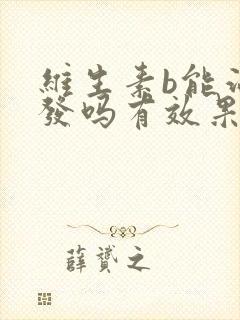 維生素b能
發吗有效果
薛贇之